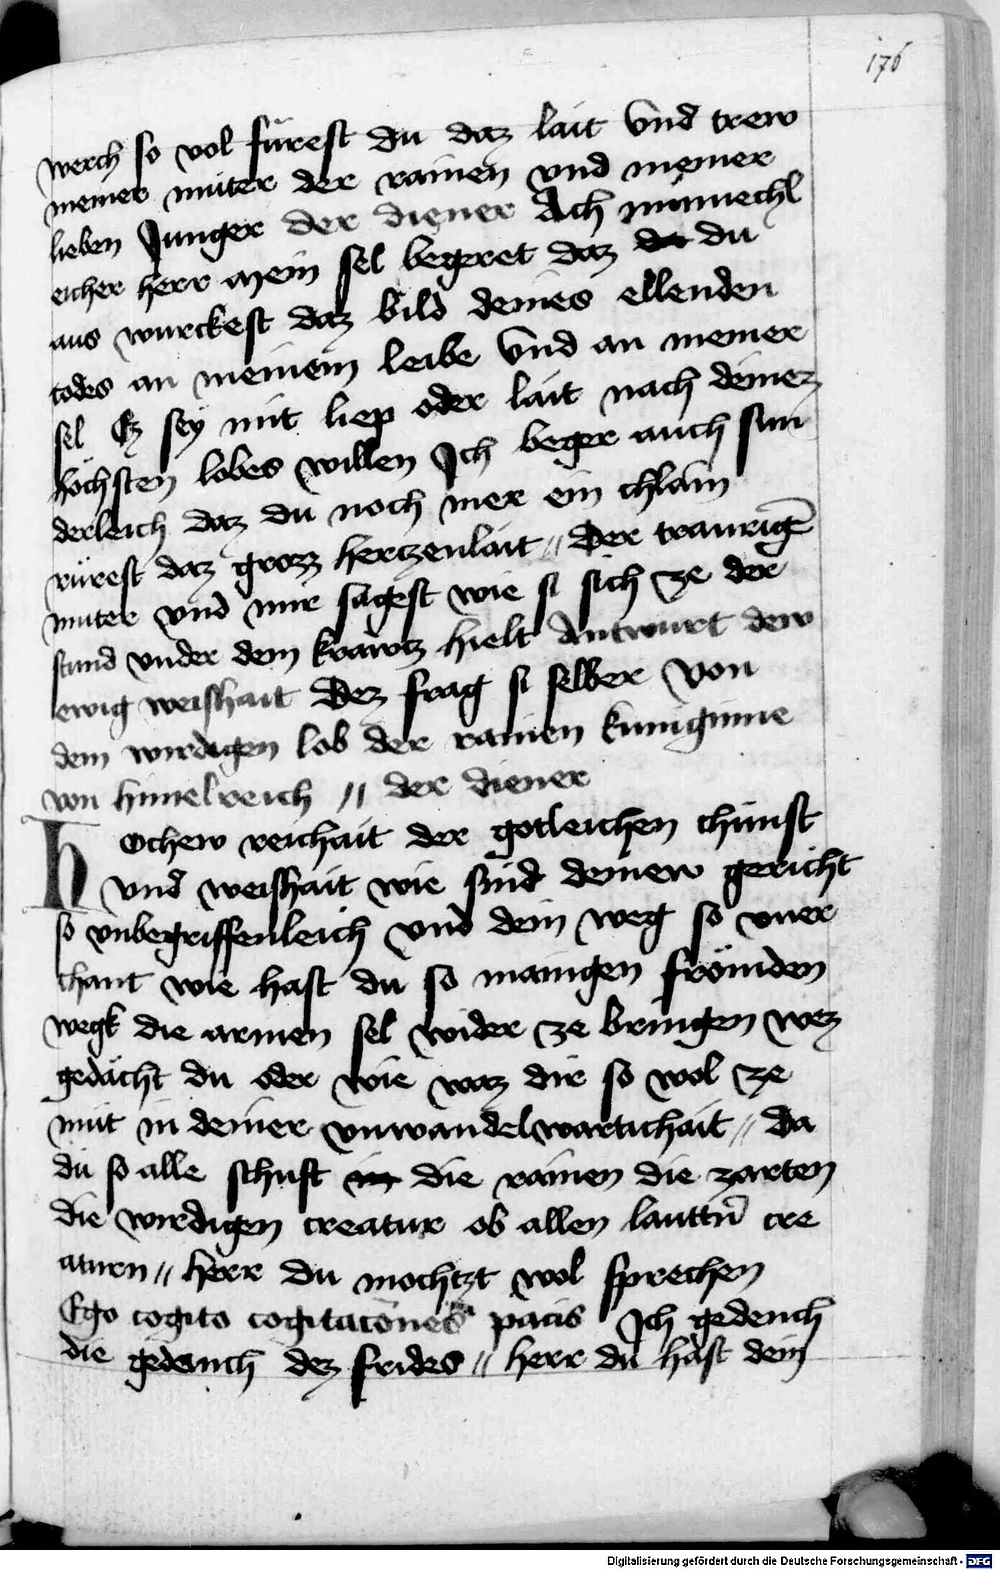 176
werch so vol fürest du daz lait Vnd trew
meiner muter der rainen vnd meiner
lieben Junger der diener Ach minnechl
eicher herr mein sel begeret daz da du
aus wurckest daz bild deines ellenden
todes an meinem leibe Vnd an meiner
sel Ez sey mit liep oder lait nach deinez
höchsten lobes willen Ich beger auch sun
derleich daz du noch mer ein chlain
rürest daz grozz hertzenlait // Der traurigē
muter vnd mir sagest wie si sich ze der
stund vnder dem kräwtz hielt Antwurt dew
ewig weishait Dez frag si selber Von
dem wirdigen lob der rainen kuniginne
von himelreich // der diener
Hochew reichait der gotleichen chunst
vnd weishait wie sind deinew gericht
so vnbegriffenleich vnd dein weg so vner
chant wie hast du so manigen frömden
wegk die armen sel wider ze bringen wez
gedächt du oder wie waz dir so wol ze
müt in deiner vnwandelwartichait // Da
du so alle schuft in die rainen die zarten
die wirdigen creatur ob allen lauttn̄ cre
aturn // herr du mochtzt wol sprechen
Ego cogito cogitacōnes pacis Ich gedench
die gedanch dez frides // herr du hast dein
Digitalisierung gefördert durch die Deutsche Forschungsgemeinschaft - DFG